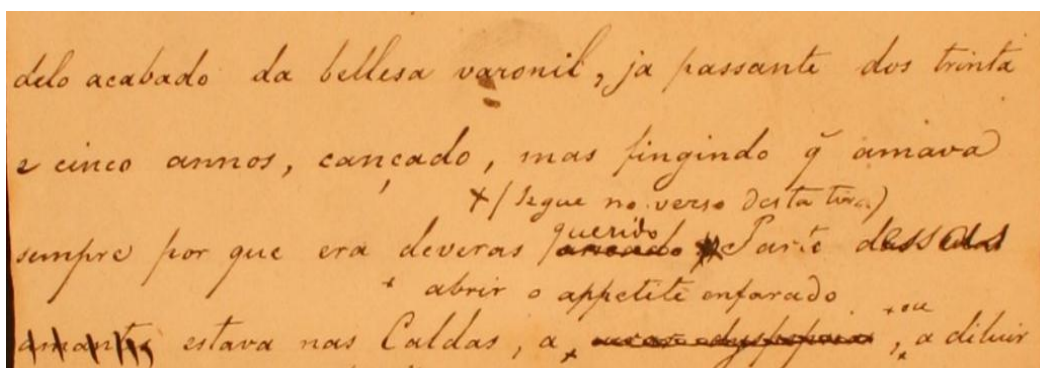 delo acabado da bellesa varonil, ja passante dos trinta
e cinco annos, cançado, mas fingindo q̃ amava
+ (Segue no verso desta tira)
sempre por que era deveras querido amado + Parte dessas
+ abrir o appetite enfarado
amantes estava nas Caldas, a + dyspepsia, + ou a diluir